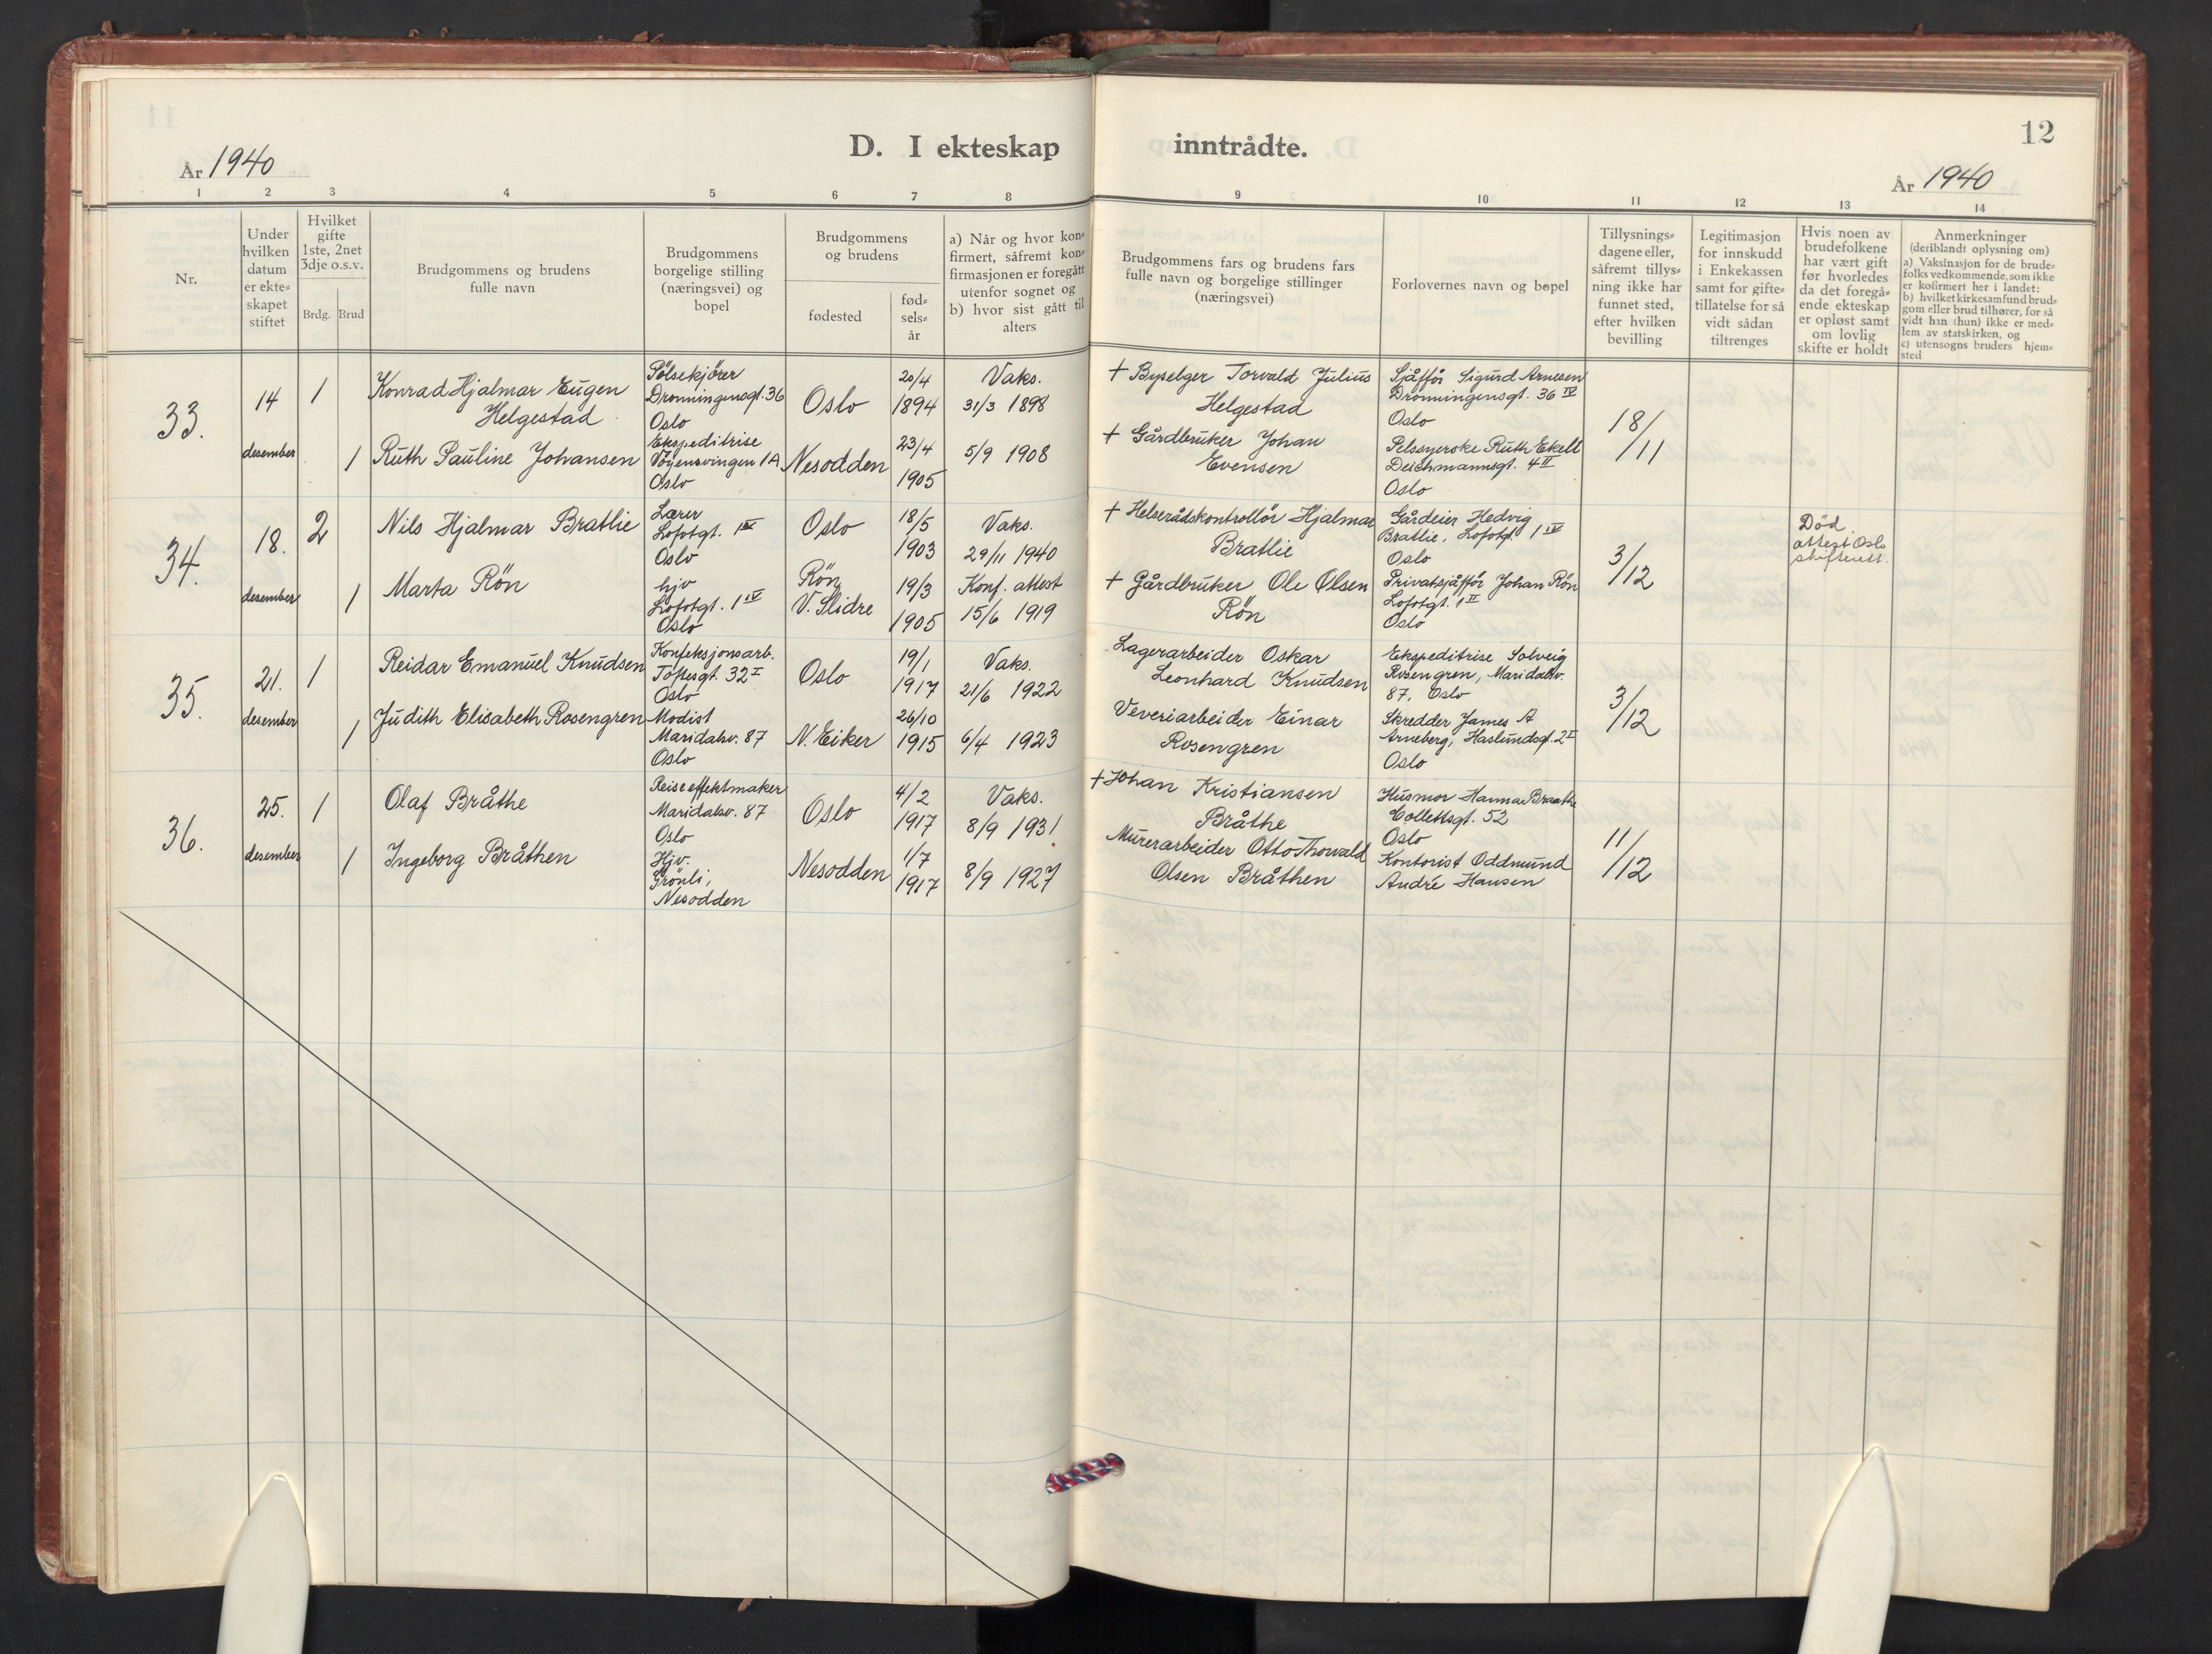 12
D. I ekteskap inntrådte.
År 1940
År 1940
1 2 3 4 5 6 7 8 9 10 11 12 13 14
Nr.
Under
hvilken
datum
er ekte-
skapet
stiftet
Hvilket
gifte
1ste, 2net
3dje o.s.v.
Brdg. Brud
Brudgommens og brudens
fulle navn
Brudgommens
borgelige stilling
(næringsvei) og
bopel
Brudgommens
og brudens
fødested
fød-
sels-
år
a) Når og hvor kon-
firmert, såfremt kon-
firmasjonen er foregått
utenfor sognet og
b) hvor sist gått til
alters
Brudgommens fars og brudens fars
fulle navn og borgelige stillinger
(næringsvei)
Forlovernes navn og bopel
Tillysnings-
dagene eller,
såfremt tillys-
ning ikke har
funnet sted,
efter hvilken
bevilling
Legitimasjon
for innskudd
i Enkekassen
samt for gifte-
tillatelse for så
vidt sådan
tiltrenges
Hvis noen av
brudefolkene
har vært gift
før hvorledes
da det foregå-
ende ekteskap
er opløst samt
om lovlig
skifte er holdt
Anmerkninger
(deriblandt oplysning om)
a) Vaksinasjon for de brude-
folks vedkommende, som ikke
er kofirmert her i landet:
b) hvilket kirkesamfund brud-
gom eller brud tilhører, for så
vidt han (hun) ikke er med-
lem av statskirken, og
c) utensogns bruders hjem-
sted
33.
14
desember
1
Konrad Hjalmar Eugen
Helgestad
Pölsekjörer
Dronningensgt. 36
Oslo
Oslo
20/4
1894
Vaks.
31/3 1898
+ Byselger Torvald Julius
Helgestad
Sjåfför Sigurd Arnesen
Dronningensgt. 36 IV
Oslo
18/11
1
Ruth Pauline Johansen
Ekspeditrise
Vöyensvingen 1A
Oslo
Nesodden
23/4
1905
5/9 1908
+ Gårdbruker Johan
Evensen
Pelssyerske Ruth Ekelt
Deichmannsgt. 4 II
Oslo
34.
18.
desember
2
Nils Hjalmar Bratlie
Lærer
Lofotgt. 1 IV
Oslo
Oslo
18/5
1903
Vaks.
29/11 1940
+ Helserådskontrollör Hjalmar
Bratlie
Gårdeier Hedvig
Bratlie, Lofotgt. 1 IV
Oslo
3/12
Död.
attest Oslo
skifterett.
1
Marta Rön
hjv
Lofotgt. 1 IV
Oslo
Rön
V. Slidre
19/3
1905
Konf. attest
15/6 1919
+ Gårdbruker Ole Olsen
Rön
Privatsjåfför Johan Rön
Lofotgt. 1 II
Oslo
35.
21.
desember
1
Reidar Emanuel Knudsen
Konfeksjonsarb.
Töftesgt. 32 I
Oslo
Oslo
19/1
1917
Vaks.
21/6 1922
Lagerarbeider Oskar
Leonhard Knudsen
Ekspeditrise Solveig
Rosengren, Maridalsv.
87, Oslo
3/12
1
Judith Elisabeth Rosengren
Modist
Maridalsv. 87
Oslo
N. Eiker
26/10
1915
6/4 1923
Veveriarbeider Einar
Rosengren
Skredder James A
Arneberg, Haslundsgt. 2 I
Oslo
36.
25.
desember
1
Olaf Bråthe
Reiseeffektmaker
Maridalsv. 87
Oslo
Oslo
4/2
1917
Vaks.
8/9 1931
+ Johan Kristiansen
Bråthe
Husmor Hanna Braathe
Collettsgt. 52
Oslo
11/12
1
Ingeborg Bråthen
Hjv.
Grönli,
Nesodden
Nesodden
1/7
1917
8/9 1927
Murerarbeider Otto Thorvald
Olsen Bråthen
Kontorist Oddmund
André Hansen